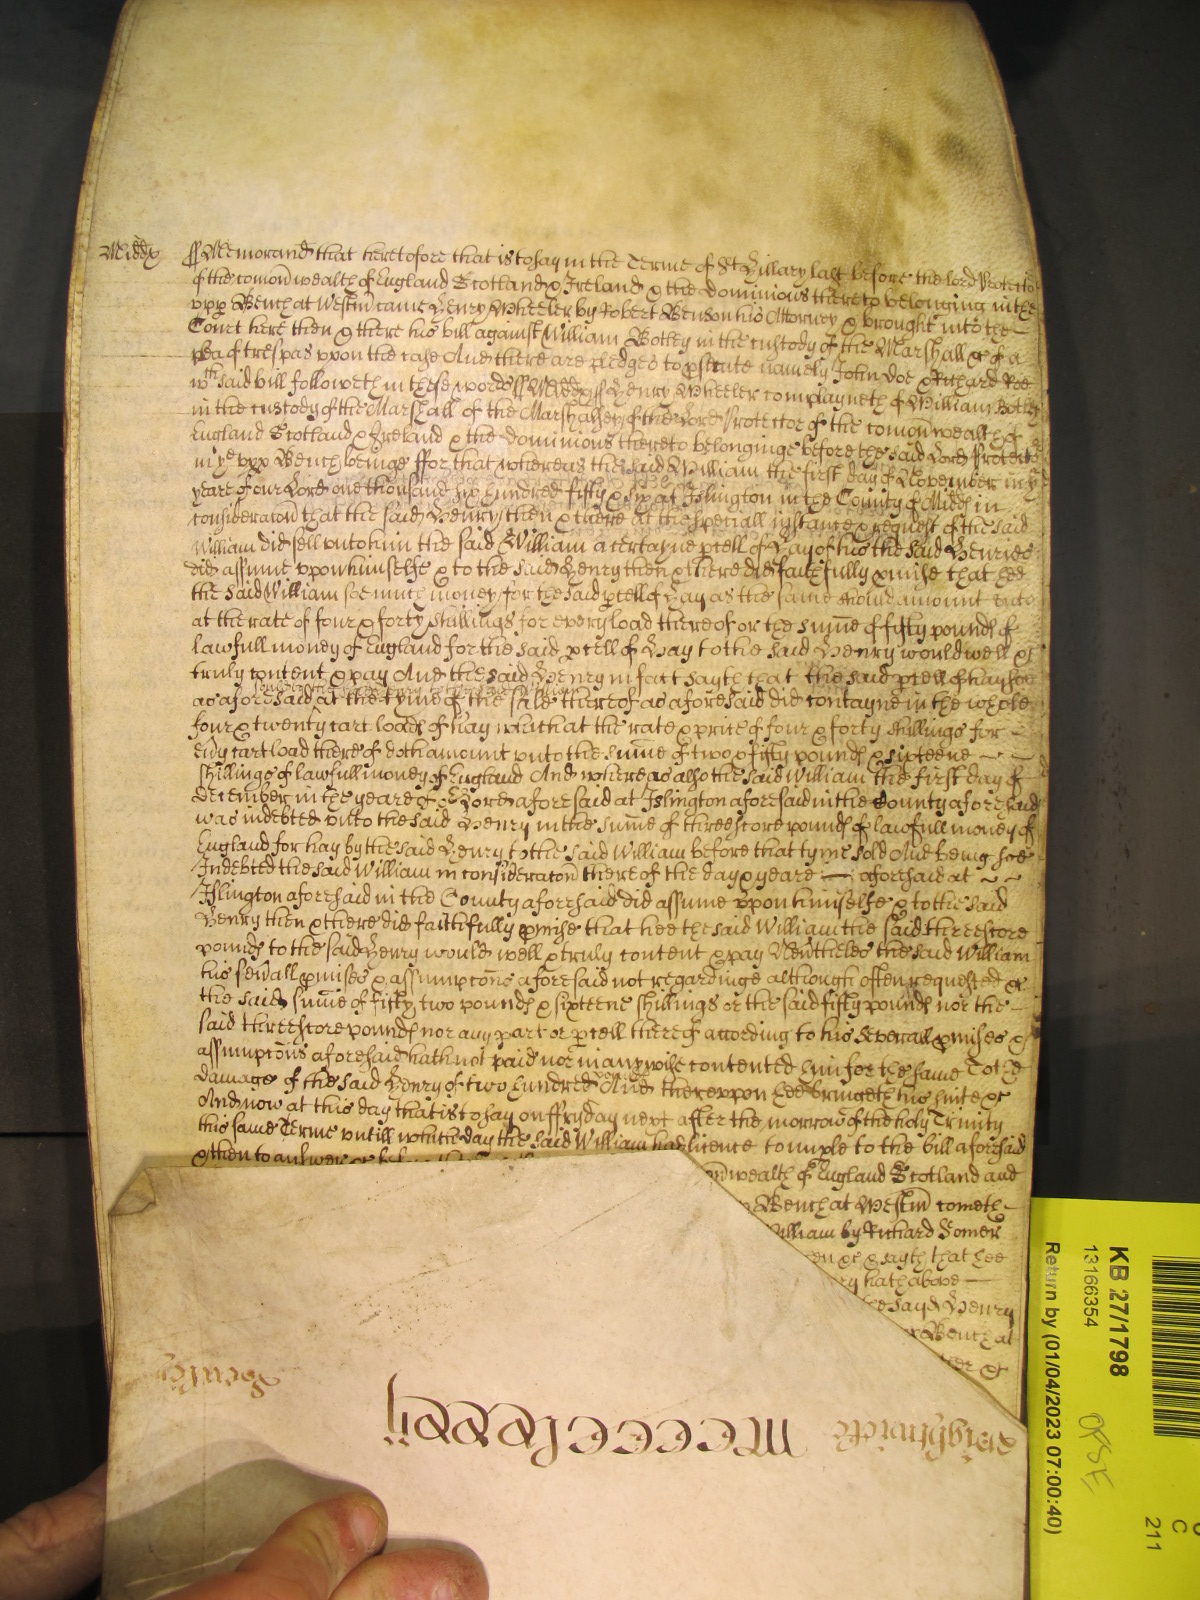 Midd̄x
ss Memorand that heretofore that is to say in the Terme of St Hillary last before the lord Protector
of the comon wealth of England Scotland & Ireland & the dominions thereto belonging in the
upp Bench at Westm̄ came Henry Wheeler by Robert Benson his Attorney & brought into the
Court here then & there his bill against William Botley in the custody of the Marshall &c of a
plea of trespas upon the case And there are pledges to psecute namely John Doe & Richard Roe
wch said bill followeth in these words ss Midd̄x ss Henry Wheeler complayneth of William Botley
in the custody of the Marshall of the Marshalsey of the Lord Protector of the comon wealth of
England Scotland & Ireland & the dominions thereto belonginge before the said Lord Protector
in ye upp Bench beinge ffor that whereas the said William the first day of November in ye
yeare of our Lord one thousand six hundred fifty & six at Islington in the County of Midd̄ in
consideraton that the said Henry then & there at the speciall instance & request of the said
William did sell unto him the said William a certayne pcell of Hay of his the said Henries
did assume upon himselfe & to the said Henry then & there did faithfully pmise that hee
the said William soe much money for the said pcell of Hay as the same should amount unto
at the rate of four & forty shillings for every load thereof or the sum̄e of fifty pounds of
lawfull money of England for the said pcell of Hay to the said Henry would well &
truly content & pay And the said Henry in fact sayth that the said pcell of hay soe
as aforesaid at the tyme of the sale thereof as aforesaid did contayne in the whole
four & twenty cart loads of hay which at the rate & price of four & forty shillings for
evy cart load thereof doth amount unto the sum̄e of two & fifty pounds & sixteene
shillings of lawfull money of England And whereas alsoe the said William the first day of
December in the yeare of our Lord aforesaid at Islington aforesaid in the County aforesaid
was indebted unto the said Henry in the sum̄e of threescore pounds of lawfull money of
England for hay by the said Henry to the said William before that tyme sold And being soe
Indebted the said William in consideraton thereof the day & yeare — aforesaid at
Islington aforesaid in the County aforesaid did assume upon himselfe & to the said
Henry then & there did faithfully pmise that hee the said William the said threescore
pounds to the said Henry would well & truly content & pay Nevtheles the said William
his sevall pmises & assumptons aforesaid not regardinge although often requested &c
the said sum̄e of fifty two pounds & sixteene shillings or the said fifty pounds nor the
said threescore pounds nor any part or pcell thereof according to his severall pmises &
assumptons aforesaid hath not paid nor in any wise contented him for the same To the
damage of the said Henry of two hundred pounds And thereupon hee bringeth his suite &c
And now at this day that is to say on ffryday next after the morrow of the holy Trinity
this same Terme untill which day the said William had licence to imple to the bill aforesaid
& then to answer &c
wealth of England Scotland and
Bench at Westm̄ cometh
William by Richard Somer
&c & sayth that hee
hath above
the sayd Henry
Bench at
&c
KB 27/1798
13166354
Return by (01/04/2023 07:00:40)
C
211